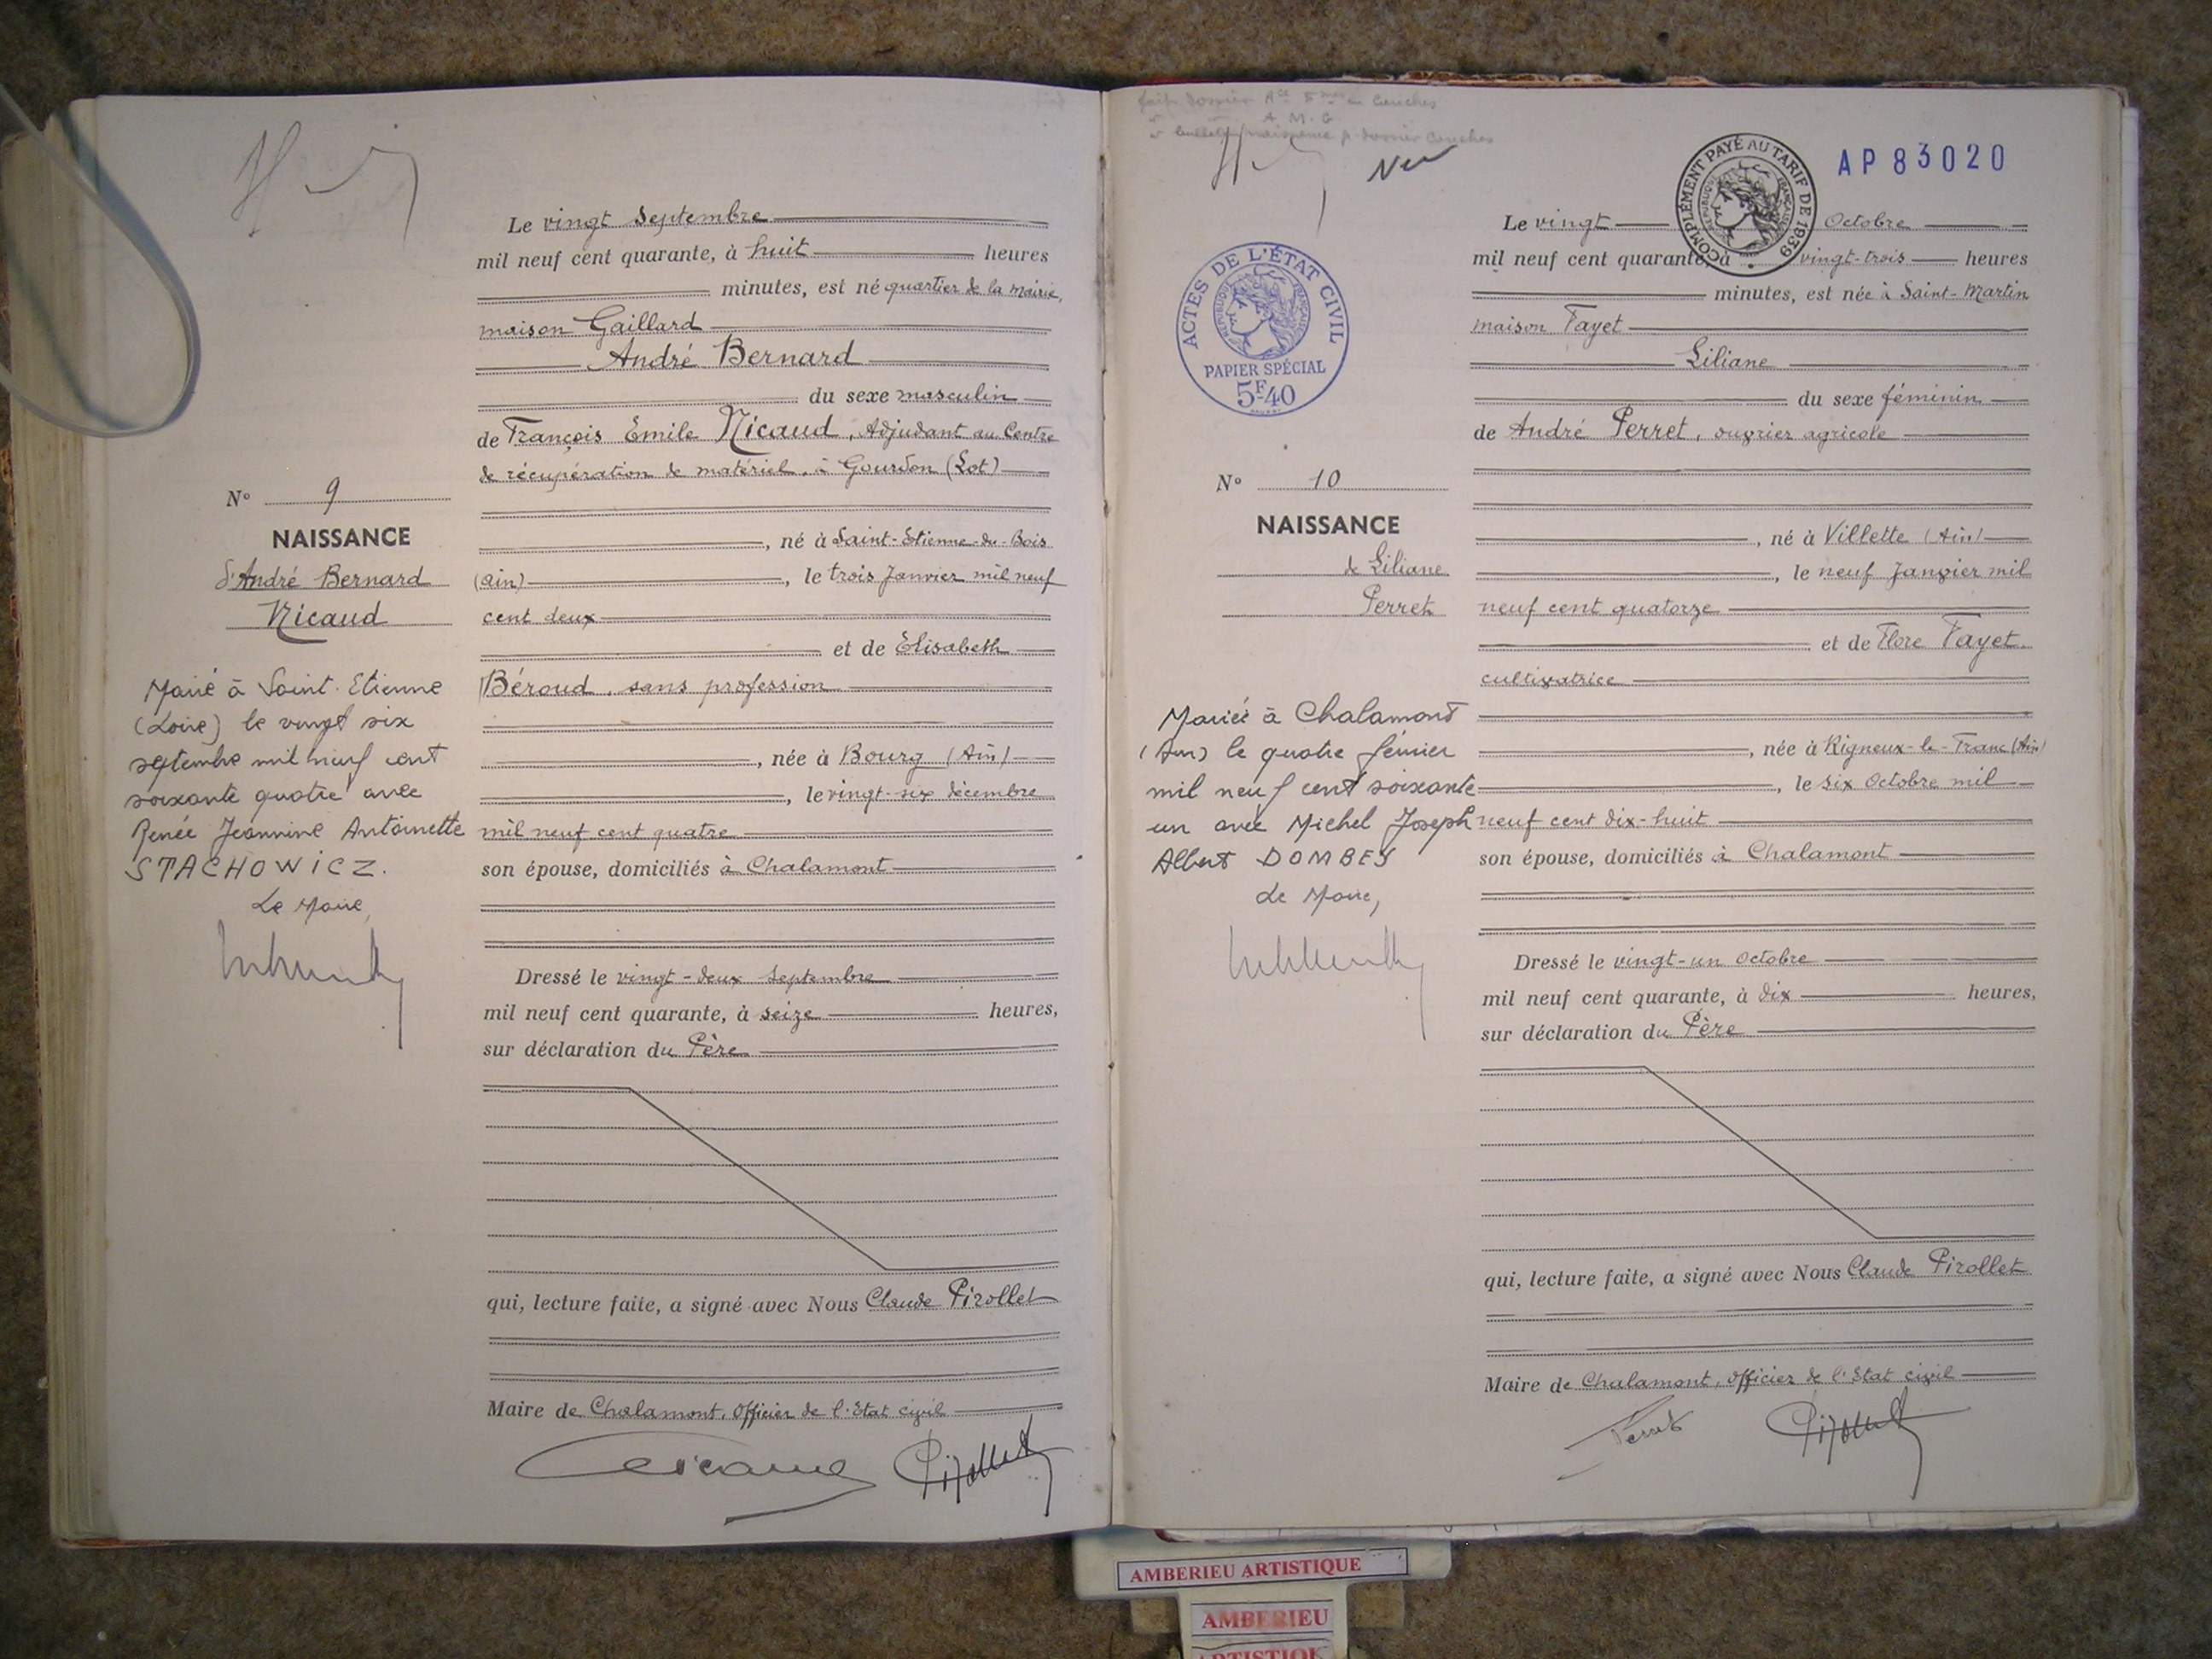 Le vingt Septembre
mil neuf cent quarante, à huit heures
minutes, est né quartier de la Mairie,
maison Gaillard
André Bernard
du sexe masculin
de François Emile Nicaud, Adjudant au Centre
de récupération de matériel, à Gourdon (Lot)
N° 9
NAISSANCE
d'André Bernard
Nicaud
, né à Saint-Etienne-du-Bois
(Ain) , le trois Janvier mil neuf
cent deux
et de Elisabeth
Béroud, sans profession
, née à Bourg (Ain)
, le vingt-six décembre
mil neuf cent quatre
son épouse, domiciliés à Chalamont
Marié à Saint-Etienne
(Loire) le vingt six
septembre mil neuf cent
soixante quatre avec
Renée Jeannine Antoinette
STACHOWICZ.
Le Maire,
Dressé le vingt-deux Septembre
mil neuf cent quarante, à seize heures,
sur déclaration du Père
qui, lecture faite, a signé avec Nous Claude Pirollet
Maire de Chalamont, Officier de l'Etat civil
fait dossier
A. M. G
naissance p. dossier couches
COMPLÉMENT PAYÉ AU TARIF DE 1939
RÉPUBLIQUE FRANÇAISE
AP 83020
ACTES DE L'ÉTAT CIVIL
RÉPUBLIQUE FRANÇAISE
PAPIER SPÉCIAL
5F40
Le vingt Octobre
mil neuf cent quarante, à vingt-trois heures
minutes, est née à Saint-Martin
maison Fayet
Liliane
du sexe féminin
de André Perret, ouvrier agricole
N° 10
NAISSANCE
de Liliane
Perret
, né à Villette (Ain)
, le neuf Janvier mil
neuf cent quatorze
et de Flore Fayet,
cultivatrice
, née à Rigneux-le-Franc (Ain)
, le six Octobre mil
neuf cent dix-huit
son épouse, domiciliés à Chalamont
Mariée à Chalamont
(Ain) le quatre février
mil neuf cent soixante
un avec Michel Joseph
Albert DOMBEY
Le Maire,
Dressé le vingt-un Octobre
mil neuf cent quarante, à dix heures,
sur déclaration du Père
qui, lecture faite, a signé avec Nous Claude Pirollet
Maire de Chalamont, Officier de l'Etat civil
Perret
AMBERIEU ARTISTIQUE
AMBERIEU